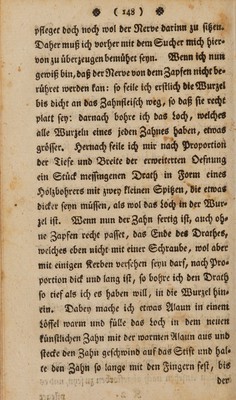 ( 148 )
pfleget doch noch wol der Nerve darinn zu sitzen.
Daher muß ich vorher mit dem Sucher mich hier-
von zu überzeugen bemühet seyn. Wenn ich nun
gewiß bin, daß der Nerve von dem Zapfen nicht be-
rühret werden kan: so feile ich erstlich die Wurzel
bis dicht an das Zahnfleisch weg, so daß sie recht
platt sey: darnach bohre ich das Loch, welches
alle Wurzeln eines jeden Zahnes haben, etwas
grösser. Hernach feile ich mir nach Proportion
der Tiefe und Breite der erweiterten Oefnung
ein Stück messingenen Drath in Form eines
Holzbohrers mit zwey kleinen Spitzen, die etwas
dicker seyn müssen, als wol das Loch in der Wur-
zel ist. Wenn nun der Zahn fertig ist, auch oh-
ne Zapfen recht passet, das Ende des Drathes,
welches eben nicht mit einer Schraube, wol aber
mit einigen Kerben versehen seyn darf, nach Pro-
portion dick und lang ist, so bohre ich den Drath
so tief als ich es haben will, in die Wurzel hin-
ein. Dabey mache ich etwas Alaun in einem
Löffel warm und fülle das Loch in dem neuen
künstlichen Zahn mit der warmen Alaun aus und
stecke den Zahn geschwind auf das Stift und hal-
te den Zahn so lange mit den Fingern fest, bis
der